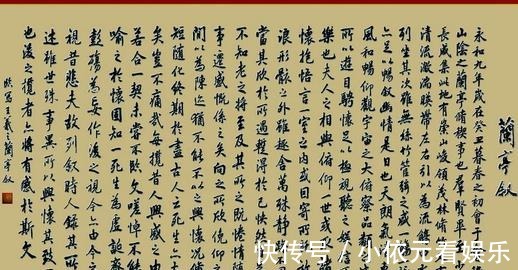 蘭亭叙
永和九年歲在癸丑暮春之初會于會
山陰之蘭亭脩稧事也羣賢畢
長咸集此地有崇山峻領茂林脩
清流激湍暎帶左右引以為流觴
列坐其次雖無絲竹管絃之盛
亦足以暢叙幽情是日也天朗氣
風和暢仰觀宇宙之大俯察品類
所以遊目騁懷足以極視聽之
樂也夫人之相與俯仰一世
懷抱悟言一室之內或因寄所
浪形骸之外雖趣舍萬殊靜
當其欣於所遇暫得於己怏然
不知老之將至及其所之既惓情
事遷感慨係之矣向之所欣俛仰之
閒以為陳迹猶不能不以之興懷況脩
短隨化終期於盡古人云死生亦大
矣豈不痛哉每攬昔人興感之由
若合一契未嘗不臨文嗟悼不能
喻之於懷固知一死生為虛誕齊
彭殤為妄作後之視今亦由今之
視昔悲夫故列叙時人錄其所
述雖世殊事異所以興懷其致一
也後之攬者亦將有感於斯文
臨寫王羲之蘭亭叙
快传号/小依元看娱乐